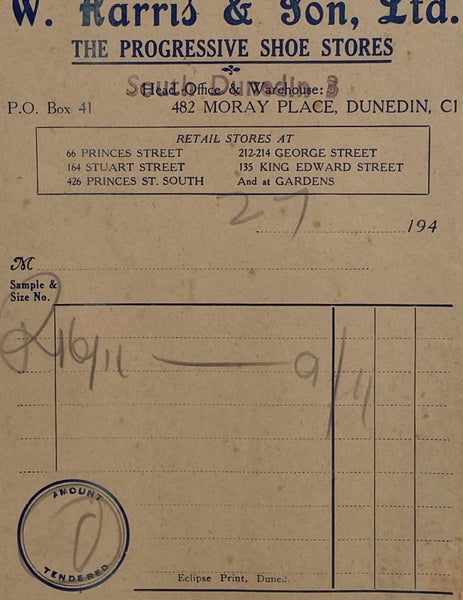 W. Harris & Son, Ltd.
THE PROGRESSIVE SHOE STORES
South Dunedin
Head Office & Warehouse:
P.O. Box 41 482 MORAY PLACE, DUNEDIN, C1
RETAIL STORES AT
66 PRINCES STREET 212-214 GEORGE STREET
164 STUART STREET 135 KING EDWARD STREET
426 PRINCES ST. SOUTH And at GARDENS
27 194
M
Sample &
Size No.
16/11 — 9/11
AMOUNT
TENDERED
Eclipse Print, Duned.